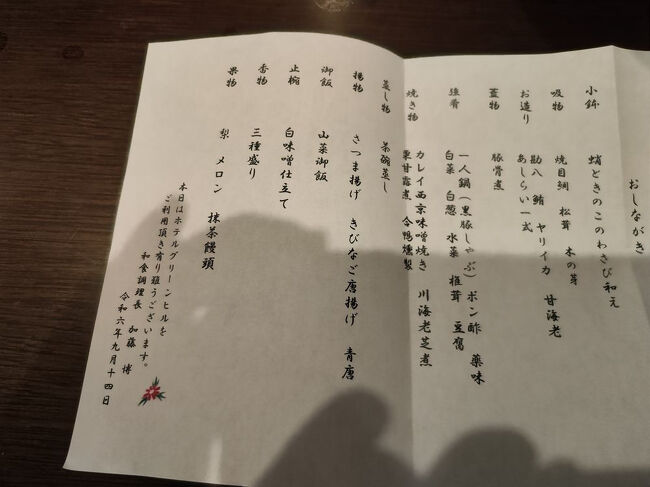 おしながき
小鉢 蛸ときのこのわさび和え
吸物 焼目鯛 松茸 木の芽
お造り 勘八 鮪 ヤリイカ 甘海老
あしらい一式
蓋物 豚骨煮
強肴 一人鍋（黒豚しゃぶ）ポン酢 薬味
白菜 白葱 水菜 椎茸 豆腐
焼き物 カレイ西京味噌焼き 川海老芝煮
栗甘露煮 合鴨燻製
蒸し物 茶碗蒸し
揚物 さつま揚げ きびなご唐揚げ 青唐
御飯 山菜御飯
止椀 白味噌仕立て
香物 三種盛り
果物 梨 メロン 抹茶饅頭
本日はホテルグリーンヒルを
ご利用頂き有り難うございます。
和食調理長 加藤 博
令和六年九月十四日